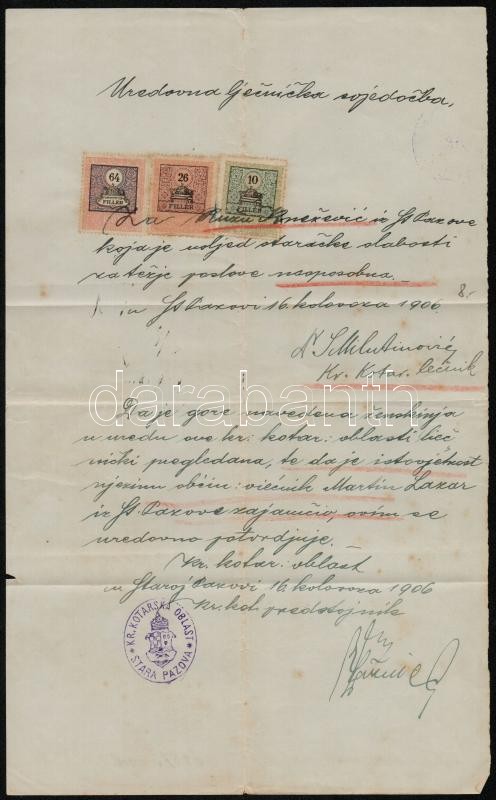 Uredovna lječnička svjedočba,
64 FILLÉR 26 FILLÉR 10 FILLÉR
Za Ružu Knežević iz St Pazove
koja je usljed staračke slabosti
za težje poslove nesposobna.
u St Pazovi 16. kolovoza 1906
8.
Dr SMilutinović
Kr. Kotar. liečnik
Da je gore navedena ženskinja
u uredu ove kr: kotar: oblasti lieč
nički pregledana, te da je istovjetnost
njezinu obćin: viećnik Martin Lazar
iz St. Pazove zajamčio, ovim se
uredovno potvrdjuje.
Kr. kotar: oblast
u Staroj Pazovi 16. kolovoza 1906
Kr. kot. predstojnik
KR. KOTARSKA OBLAST
STARA PAZOVA
darabanth